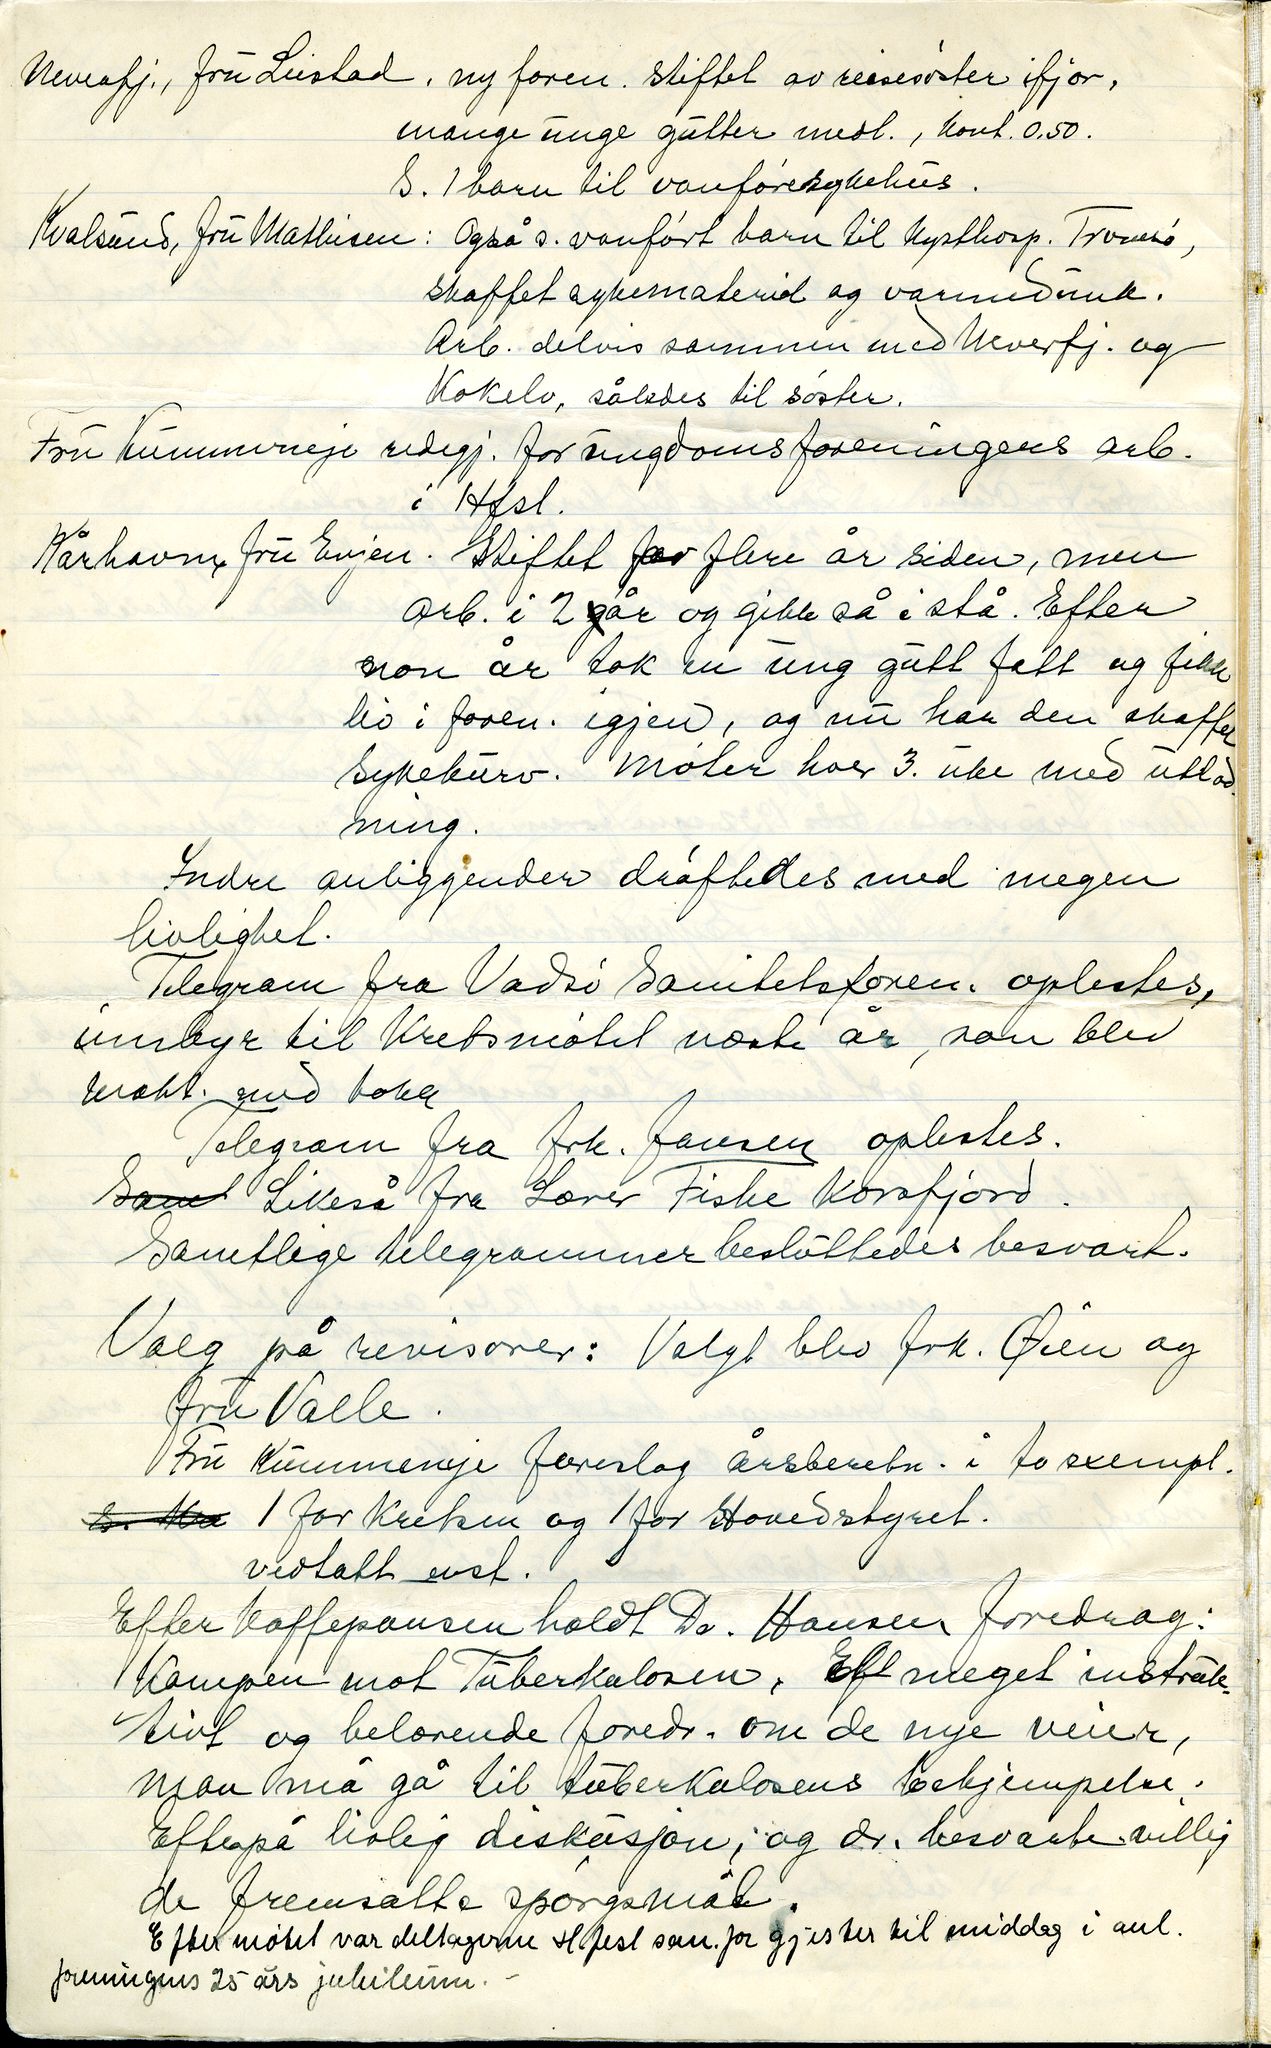 Neverfj., frü Leistad, ny foren. stiftet av reisesöster ifjor,
mange ünge gütter medl., kont. 0.50.
S. 1 barn til vanföresykehüs.
Kvalsünd, frü Mathisen: Også s. vanfört barn til Kysthosp. Tromsö,
skaffet sykemateriel og varmedünk.
Arb. delvis sammen med Neverfj. og
Kokelv, således til söster.
Frü Kümmeneje redegj. for üngdomsforeningens arb.
i Hfst.
Kårhavn, frü Enjen. Stiftet for flere år siden, men
arb. i 2 år og gikk så i stå. Efter
non år tok en üng gütt fatt og fikk
liv i foren. igjen, og nü har den skaffet
sykekürv. Möter hver 3. üke med ütlod-
ning.
Indre anliggender dröftedes med megen
livlighet.
Telegram fra Vadsö Sanitetsforen. oplestes,
innbyr til Kretsmötet næste år, som blev
med takk
Telegram fra frk. Jansen oplestes.
Samt Likeså fra Lærer Fiske Korsfjord.
Samtlige telegrammer beslüttedes besvart.
Valg på revisorer: Valgt blev frk. Öien og
frü Valle.
Frü Kümmeneje foreslog årsberetn. i to exempl.
1 for Kretsen og 1 for Hovedstyret.
vedtatt enst.
Efter Kaffepausen holdt Dr. Hansen foredrag:
Kampen mot Tüberkulosen. Et meget instrük-
tivt og belærende foredr. om de nye veier,
man må gå til tüberkulosens bekjempelse.
Efterpå livlig disküsjon, og dr. besvarte villig
de fremsatte spörgsmål.
Efter mötet var deltagerne Hfest san. for. gjester til middag i anl.
foreningens 25 års jubileum. -